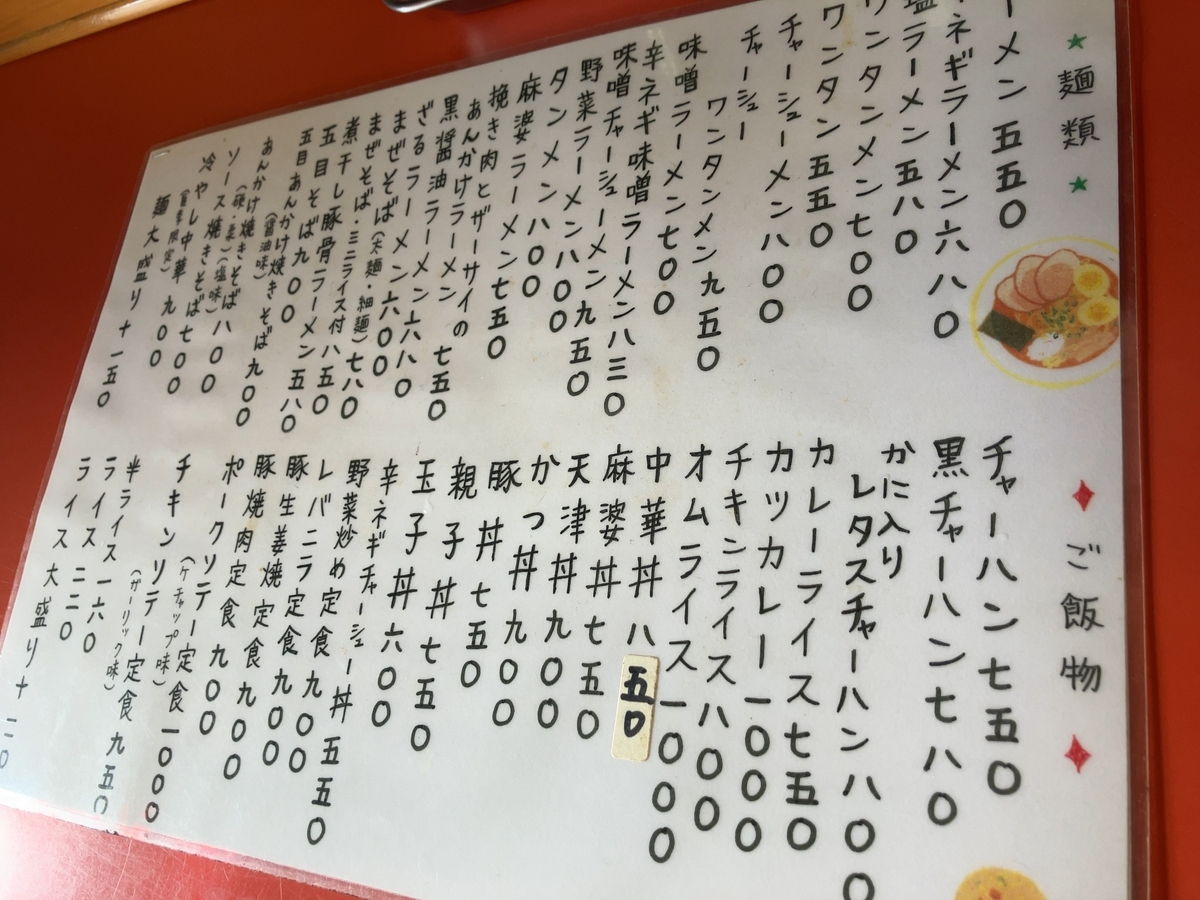 ★麺類★
ーメン五五〇
ネギラーメン六八〇
塩ラーメン五八〇
ワンタンメン七〇〇
ワンタン五五〇
チャーシューメン八〇〇
チャーシュー
ワンタンメン九五〇
味噌ラーメン七〇〇
辛ネギ味噌ラーメン八三〇
味噌チャーシューメン九五〇
野菜ラーメン八〇〇
タンメン八〇〇
麻婆ラーメン七五〇
挽き肉とザーサイの
あんかけラーメン 七五〇
黒醤油ラーメン六八〇
ざるラーメン六〇〇
まぜそば(太麺・細麺)七八〇
まぜそば・ミニライス付 八五〇
煮干し豚骨ラーメン五八〇
五目そば九〇〇
五目あんかけ焼きそば九〇〇
(醤油味)
あんかけ焼きそば八〇〇
(硬・柔)(塩味)
ソース焼きそば七〇〇
冷やし中華 九〇〇
(夏季限定)
麺大盛り+一五〇
♦ご飯物♦
チャーハン七五〇
黒チャーハン七八〇
かに入り
レタスチャーハン八〇〇
カレーライス七五〇
カツカレー一〇〇〇
チキンライス八〇〇
オムライス一〇〇〇
中華丼八五〇
麻婆丼七五〇
天津丼九〇〇
かつ丼九〇〇
豚丼七五〇
親子丼七五〇
玉子丼六〇〇
辛ネギチャーシュー丼五五〇
野菜炒め定食九〇〇
レバニラ定食九〇〇
豚生姜焼定食九〇〇
豚焼肉定食九〇〇
ポークソテー定食一〇〇〇
(ケチャップ味)
チキンソテー定食九五〇
(ガーリック味)
半ライス一六〇
ライス二二〇
ライス大盛り+一二〇